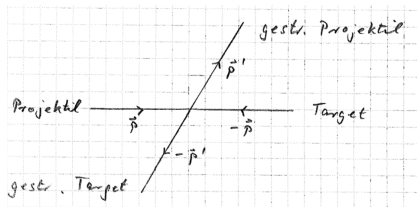 gestr. Projektil
p⃗'
Projektil
Target
p⃗
-p⃗
-p⃗'
gestr. Target